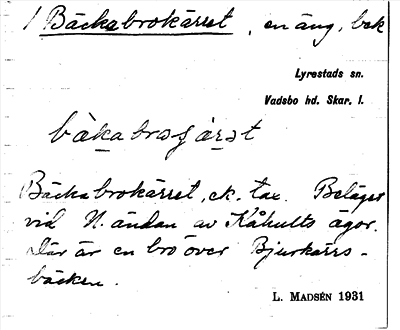 1 Bäckabrokärret, en äng, bek
Lyrestads sn.
Vadsbo hd. Skar. l.
Bäckabrokärret, ek. tax. Beläget
vid N. ändan av Kåhults ägor.
Där är en bro över Bjurkärrs-
bäcken.
L. MADSÉN 1931